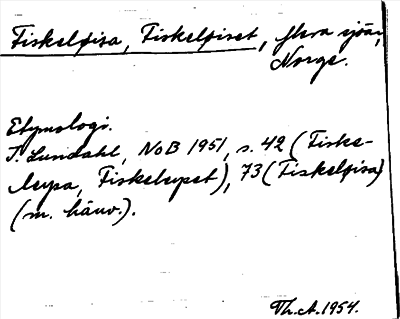 Fiskeløisa, Fiskeløiset, flera sjöar,
Norge.
Etymologi.
I. Lundahl, NoB 1951, s. 42 (Fiske-
løysa, Fiskeløyset), 73 (Fiskeløisa)
(m. hänv.).
Th.A. 1954.